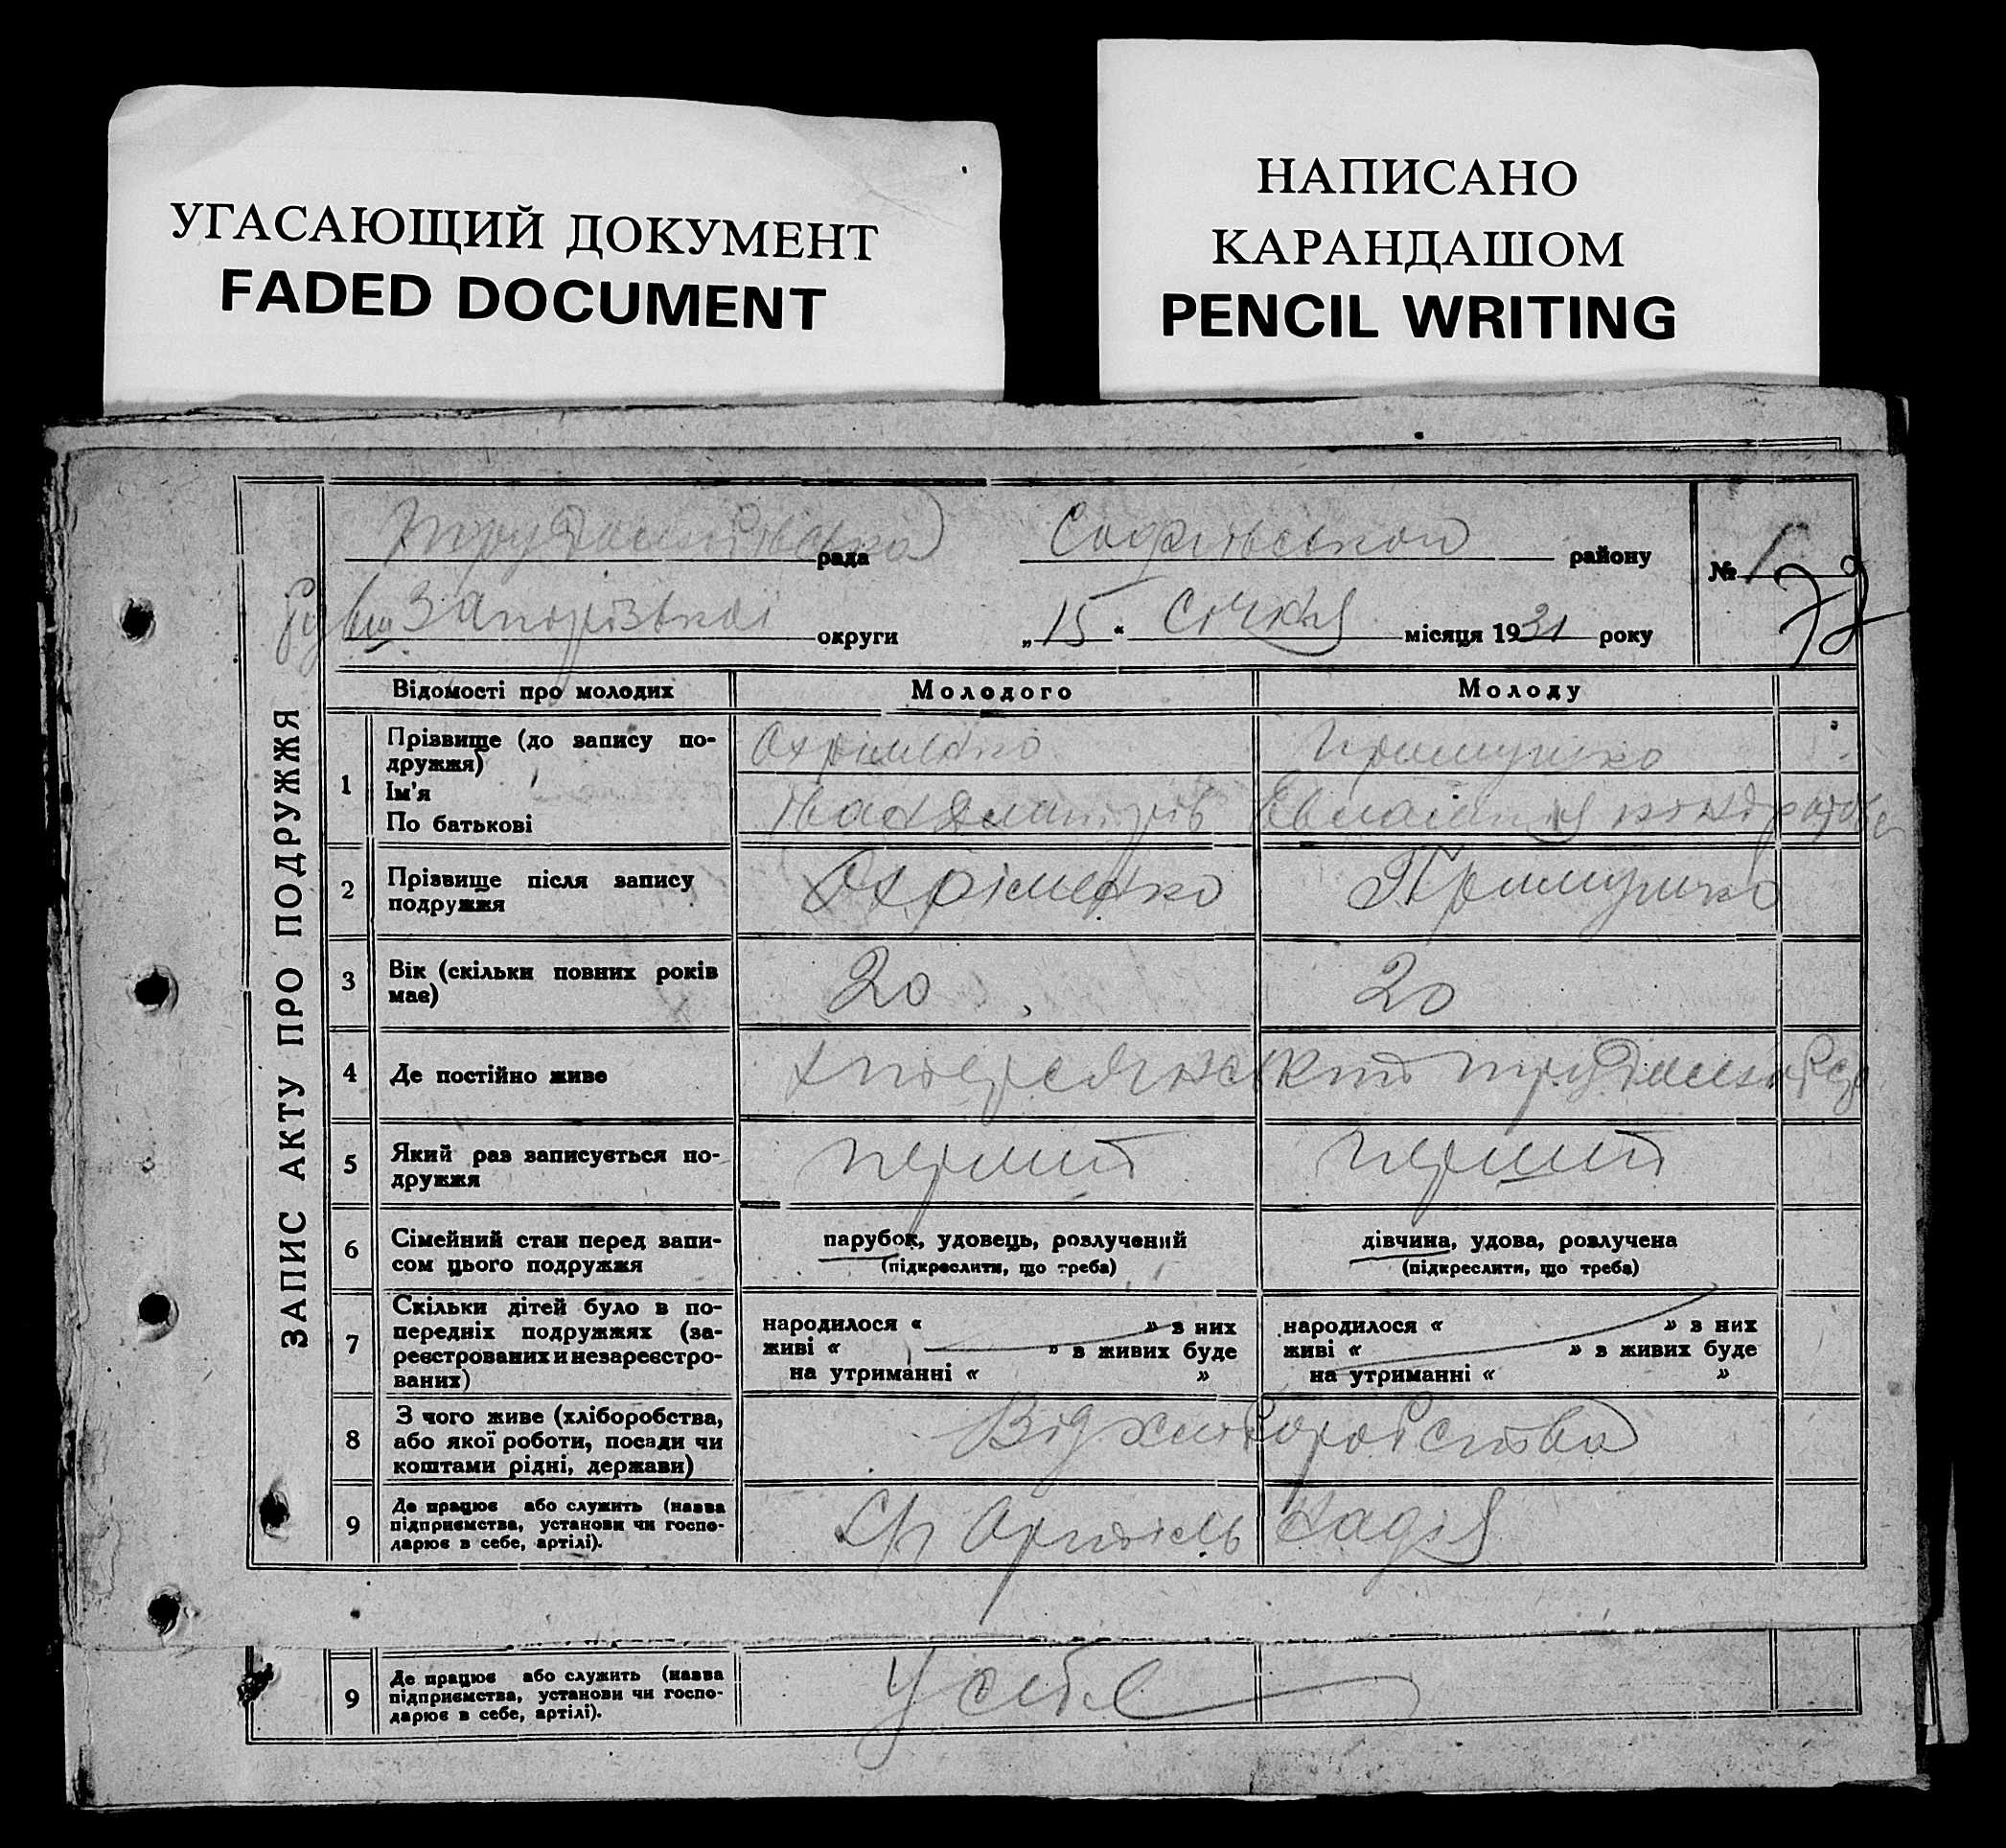 УГАСАЮЩИЙ ДОКУМЕНТ
FADED DOCUMENT
НАПИСАНО
КАРАНДАШОМ
PENCIL WRITING
ЗАПИС АКТУ ПРО ПОДРУЖЖЯ
рада Софіївського району
№ 1
78
Запорізької округи „15“ Січня місяця 1931 року
Відомості про молодих Молодого Молоду
1 Прізвище (до запису по-
дружжя)
Охріменко
Ім'я
По батькові
Іван
2 Прізвище після запису
подружжя
Охріменко
3 Вік (скільки повних років
має)
20 20
4 Де постійно живе
5 Який раз записується по-
дружжя
перший перший
6 Сімейний стан перед запи-
сом цього подружжя
парубок, удовець, розлучений
(підкреслити, що треба)
дівчина, удова, розлучена
(підкреслити, що треба)
7 Скільки дітей було в по-
передніх подружжях (за-
реєстрованих и незареєстро-
ваних)
народилося « » з них
живі « » в живих буде
на утриманні « »
народилося « » з них
живі « » в живих буде
на утриманні « »
8 З чого живе (хліборобства,
або якої роботи, посади чи
коштами рідні, держави)
Від хліборобства
9 Де працює або служить (назва
підприємства, установи чи госпо-
дарює в себе, артілі).
С/г Артіль Надія
9 Де працює або служить (назва
підприємства, установи чи госпо-
дарює в себе, артілі).
У себе